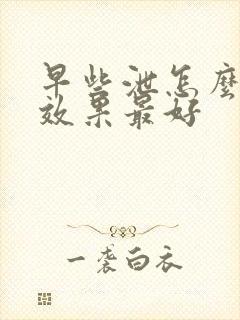 早些泄怎麽
效果最好
一袭白衣